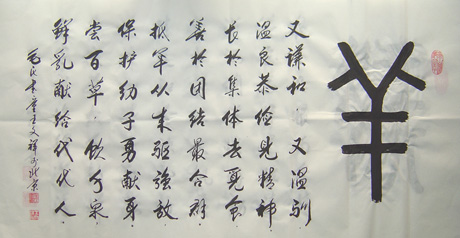 羊
又谦和·又温驯
温良恭俭见精神
长於集体去觅食
善於团结最合群
抵军从来驱强敌
保护幼子勇献身
尝百草·饮泉
鲜乳献给代代人
书童王文祥於北京